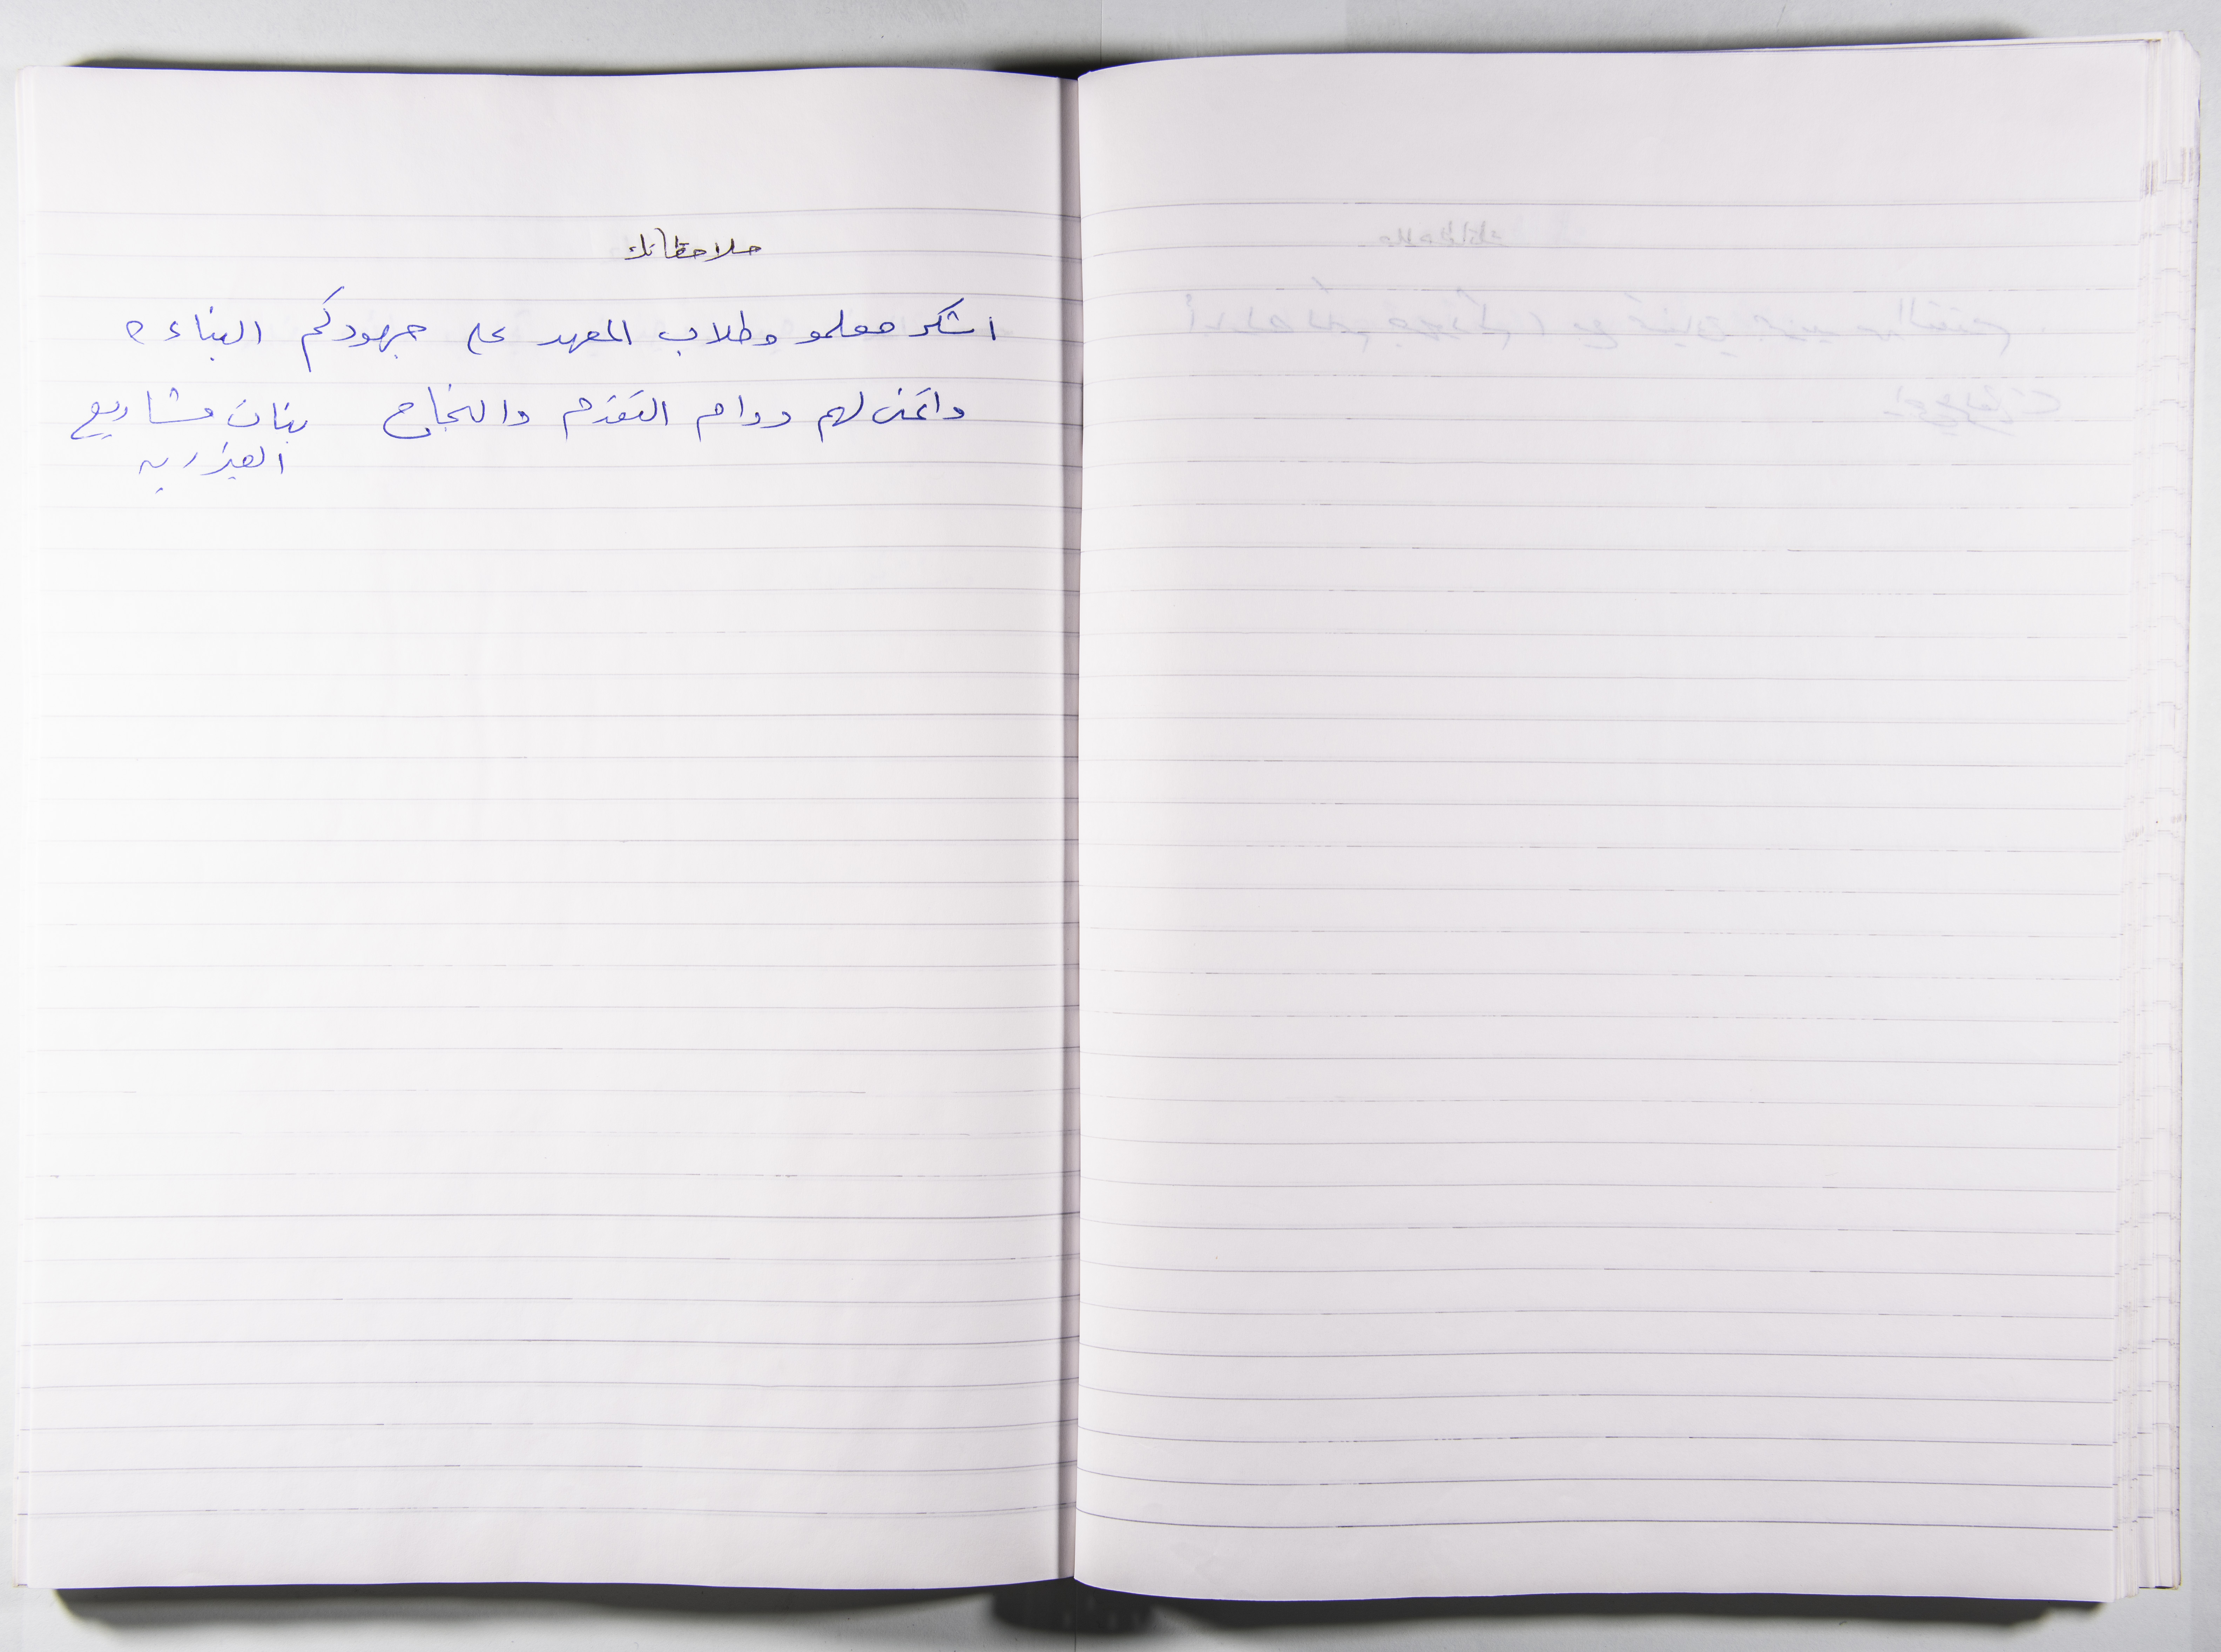 ملاحظاتك
اشكر معلمو وطلاب المعهد على جهودكم البناءه
واتمنى لهم دوام التقدم والنجاح بنات مشاريع